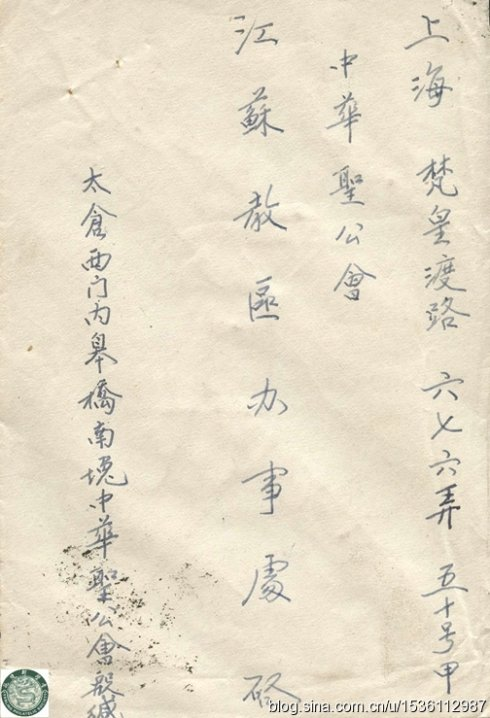 上海 梵皇渡路 六七六弄 五十号甲
中華聖公會
江蘇教區办事處 啓
太倉西门内皋橋南堍中華聖公會殷緘
blog.sina.com.cn/u/1536112987